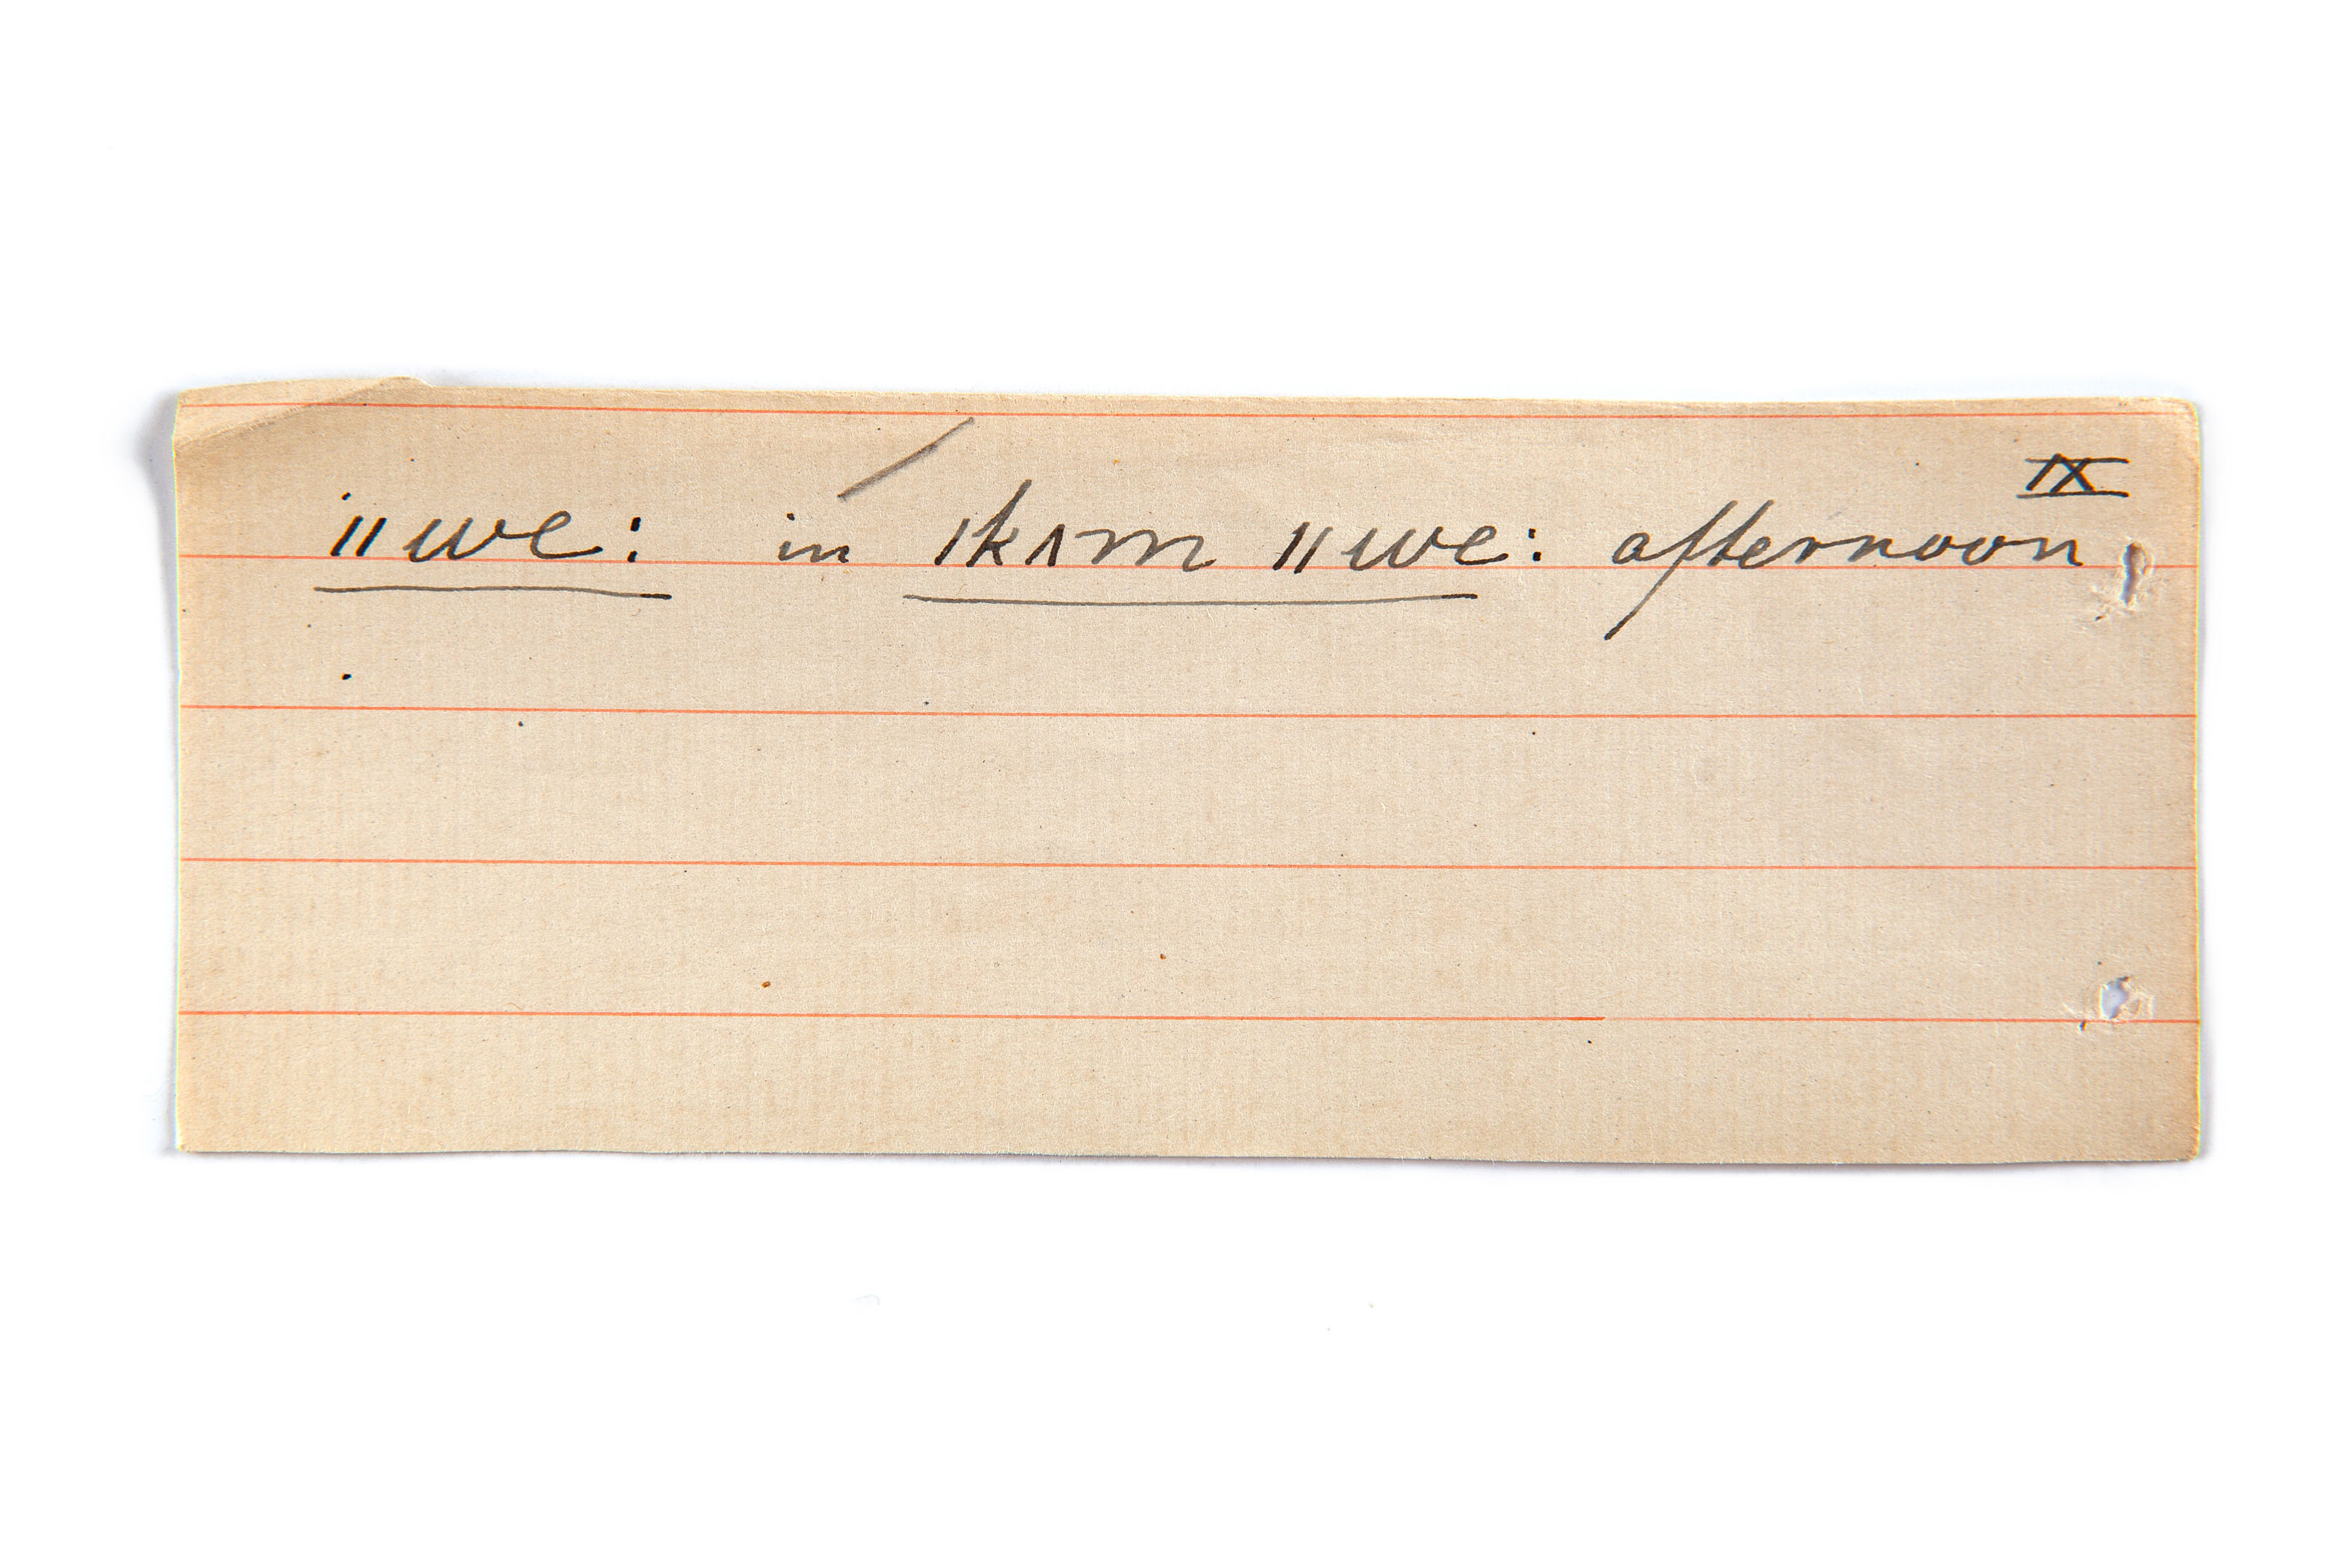 IX
//we: in /kʌm //we: afternoon